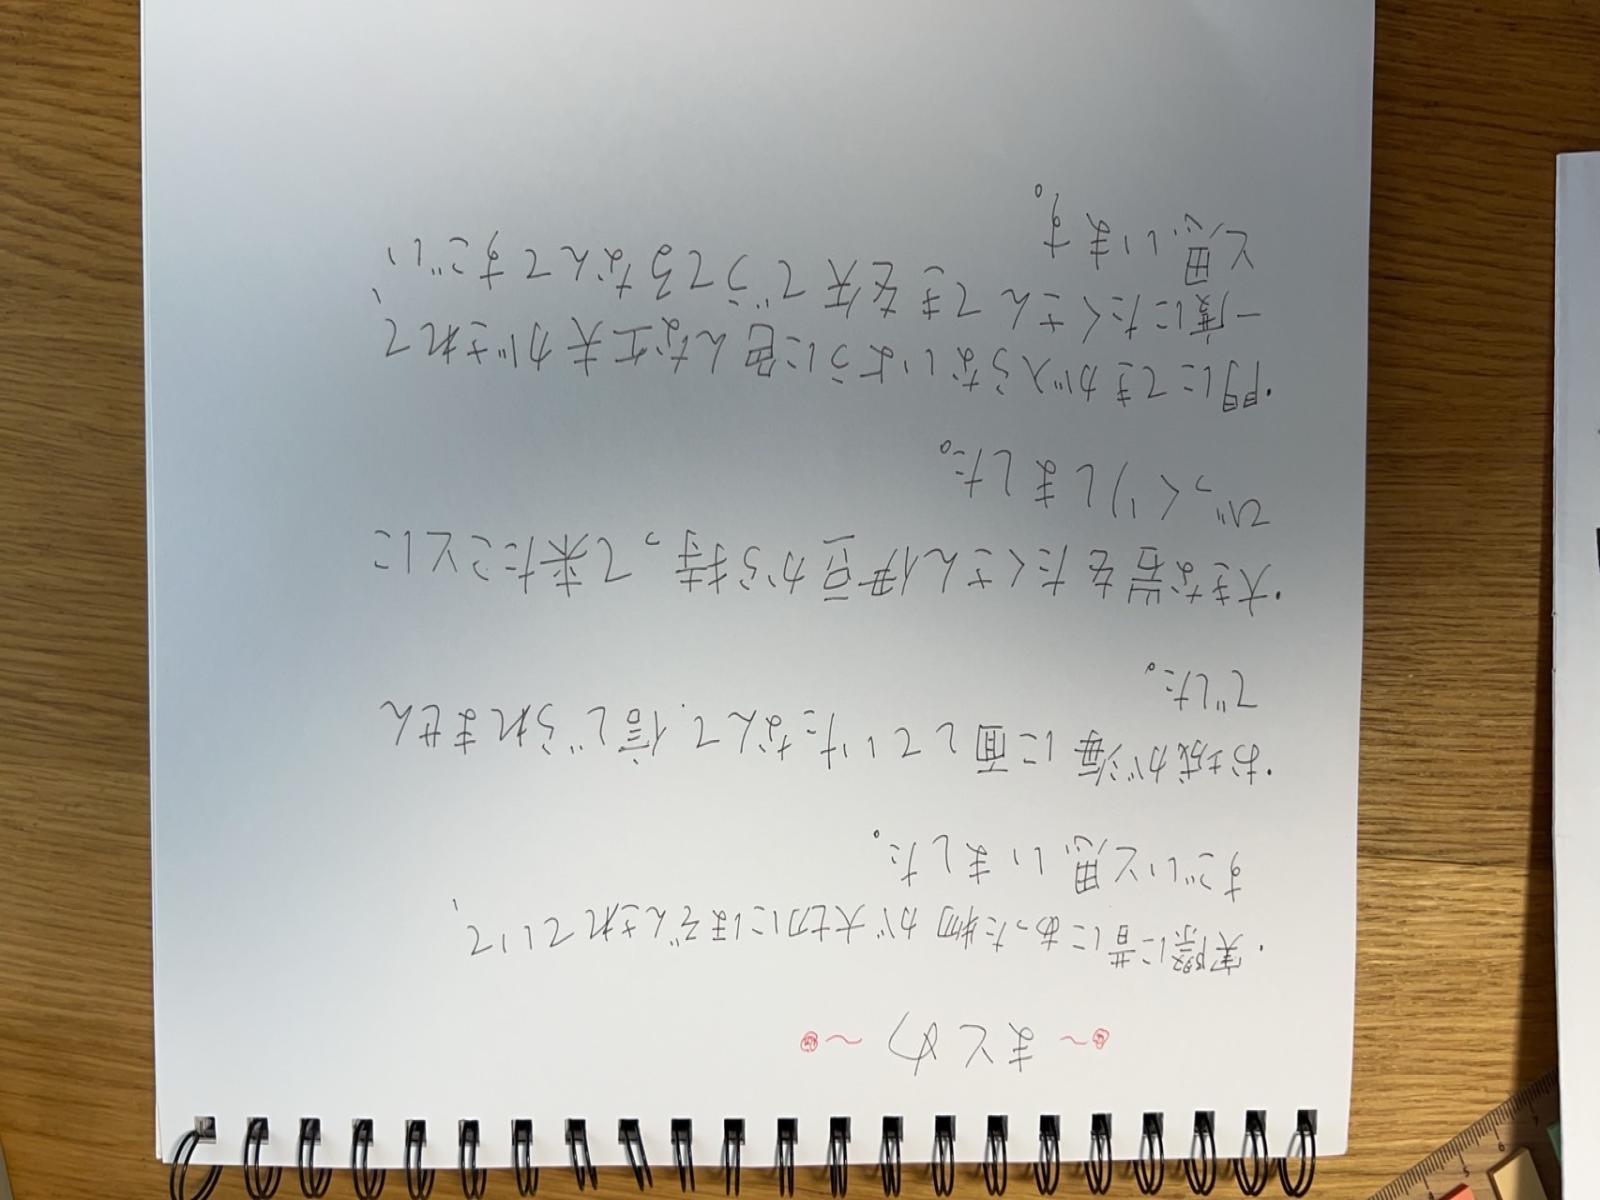 ~まとめ~
・実際に昔にあった物が大切にほぞんされていて、
すごいと思いました。
・お城が海に面していたなんて、信じられません
でした。
・大きな岩をたくさん伊豆から持って来たことに
びっくりしました。
・門にてきが入らないように色んな工夫がされて、
一度にたくさんてきを矢でうてるなんてすごい
と思います。